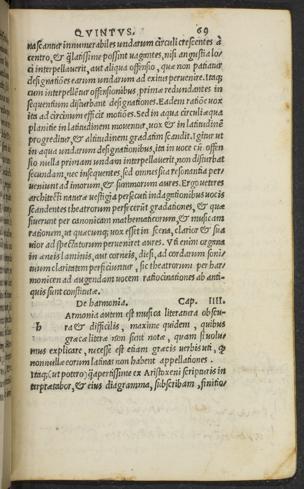 QVINTVS. 69
nascantur innumerabiles undarum circuli crescentes à
centro, & q̃ latissime possunt uagantes, nisi angustia lo/
ci interpellauerit, aut aliqua offensio, quæ non patiatur
designatiões earum undarum ad exitus peruenire. Itaq;
cum interpellẽtur offensionibus, primæ redundantes in
sequentium disturbant designationes. Eadem ratiõe uox
ita ad circinum efficit motiões. Sed in aqua circuli æqua
planitie in latitudinem mouentur, uox & in latitudinẽ
progreditur, & altitudinem gradatim scandit. Igitur ut
in aqua undarum designationibus, ita in uoce cũ offen
sio nulla primam undam interpellauerit, non disturbat
secundam, nec insequentes, sed omnes sua resonantia per
ueniunt ad imorum, & summorum aures. Ergo ueteres
architecti naturæ uestigia persecuti indagationibus uocis
scandentes theatrorum perfecerũt gradationes, & quæ
siuerunt per canonicam mathematicorum, & musicam
rationem, ut quæcunq; uox esset in scena, clarior & sua
uior ad spectatorum perueniret aures. Vti enim organa
in æneis laminis, aut corneis, diesi, ad cordarum soni/
tuum claritatem perficiuntur, sic theatrorum per har/
monicen ad augendam uocem ratiocinationes ab anti/
quis sunt constitutæ.
De harmonia. Cap. IIII.
h Armonia autem est musica literatura obscu/
ra & difficilis, maxime quidem, quibus
græcæ literæ non sunt notæ, quam si uolu/
mus explicare, necesse est etiam græcis uerbis uti, q̃
nonnullæ eorum latinas non habent appellationes.
Itaq; ut potero q̃ apertissime ex Aristoxeni scripturis in
terpretabor, & eius diagramma, subscribam, finitio/